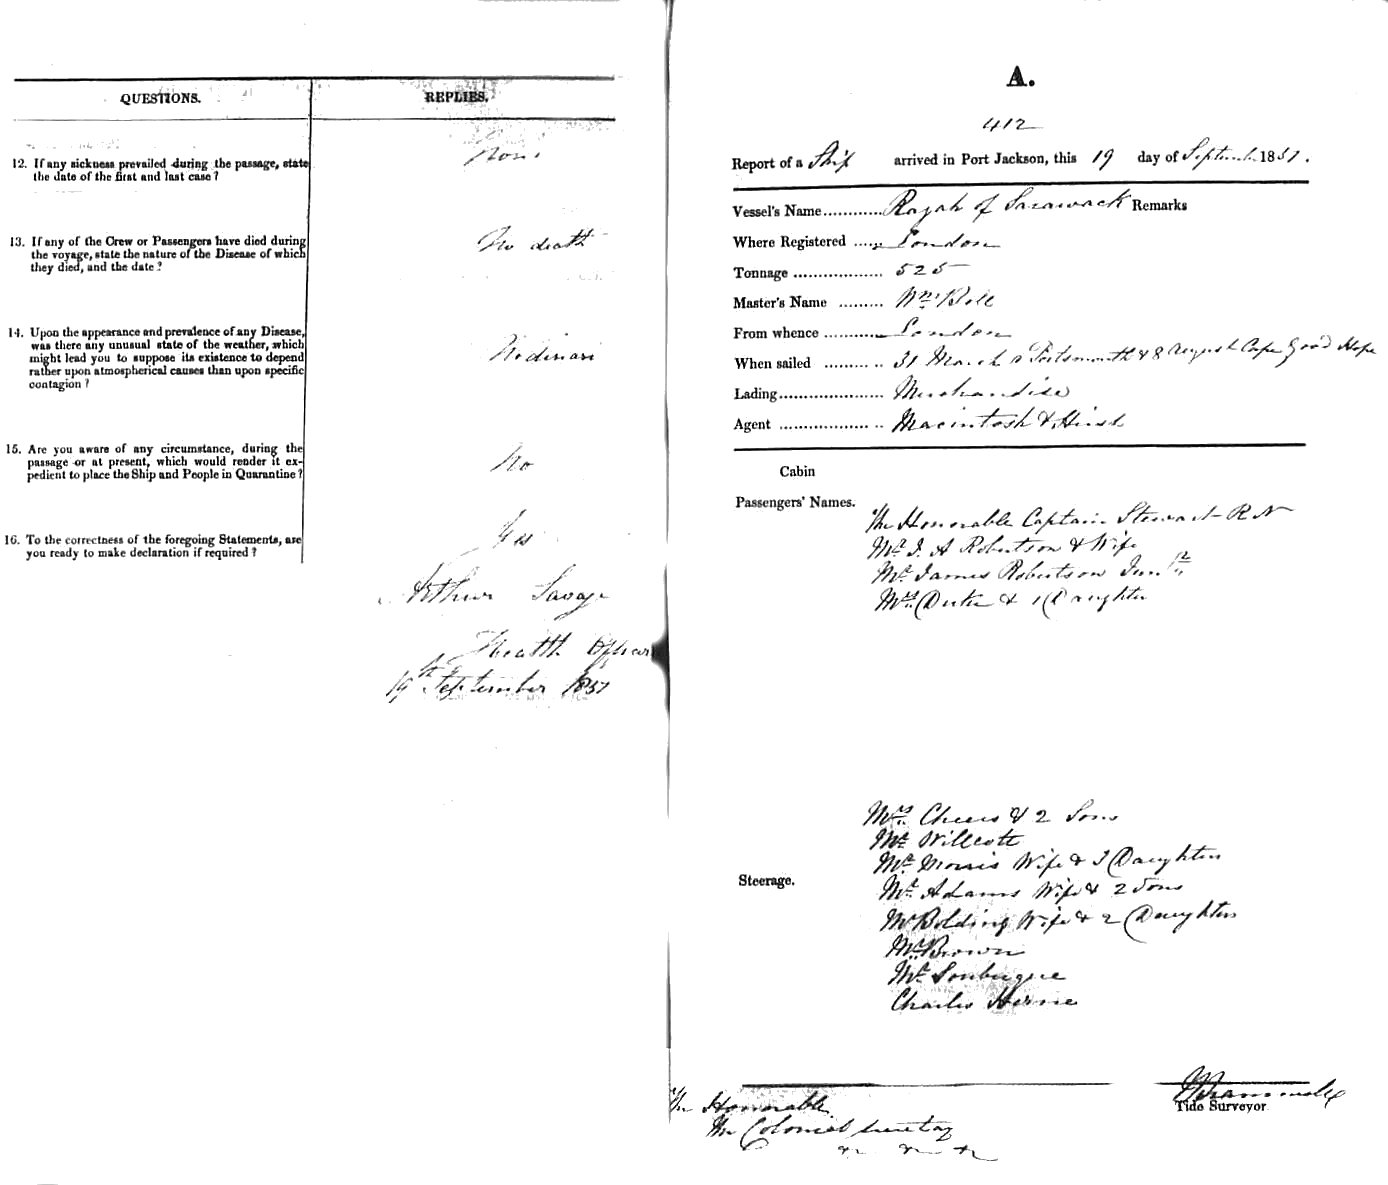 QUESTIONS.
REPLIES.
12. If any sickness prevailed during the passage, state
the date of the first and last case?
None
13. If any of the Crew or Passengers have died during
the voyage, state the nature of the Disease of which
they died, and the date?
No death
14. Upon the appearance and prevalence of any Disease,
was there any unusual state of the weather, which
might lead you to suppose its existence to depend
rather upon atmospherical causes than upon specific
contagion?
No disease
15. Are you aware of any circumstance, during the
passage or at present, which would render it ex-
pedient to place the Ship and People in Quarantine?
No
16. To the correctness of the foregoing Statements, are
you ready to make declaration if required?
Yes
Arthur Savage
Health Officer
19th September 1851
A.
412
Report of a Ship arrived in Port Jackson, this 19 day of September 1851.
Vessel's Name............ Rajah of Sarawack Remarks
Where Registered ...... London
Tonnage .................. 525
Master's Name ......... Wm. Bell
From whence ............ London
When sailed ............ 31 March & Portsmouth & 8 August Cape Good Hope
Lading..................... Merchandise
Agent ..................... Macintosh & Hirst
Cabin
Passengers' Names.
The Honorable Captain Stewart R N
Mr. J. A Robertson & Wife
Mr. James Robertson Junr.
Mrs. & 1 Daughter
Mrs. Cheers & 2 Sons
Mr. Willcott
Mr. Morris Wife & 3 Daughters
Steerage.
Mr. Adams Wife & 2 Sons
Mr Bolding Wife & 2 Daughters
Mr. Brown
Mr.
Charles Herne
Tide Surveyor
The Honorable
The Colonial Secretary